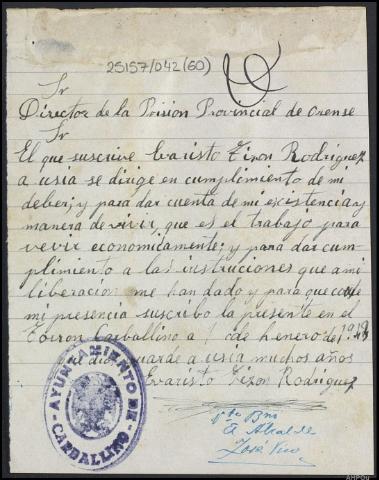 25157/042(60)
Sr
Director de la Prision Provincial de Orense
Sr
El que suscrive Evaristo Tizon Rodriguez
a usia se dirige en cumplimiento de mi
deber; y para dar cuenta de mi existencia y
manera de vivir, que es el trabajo para
vevir economicamente; y para dar cum-
plimiento a las instruciones que a mi
liberacion me han dado y para que conste
mi presencia suscribo la presente en el
Carballino a 1 de henero de 19
que dios guarde a usia muchos años
Evaristo Tizon Rodriguez
AYUNTAMIENTO DE
CARBALLINO
Vto Bno
El Alcalde
José
AHPOu